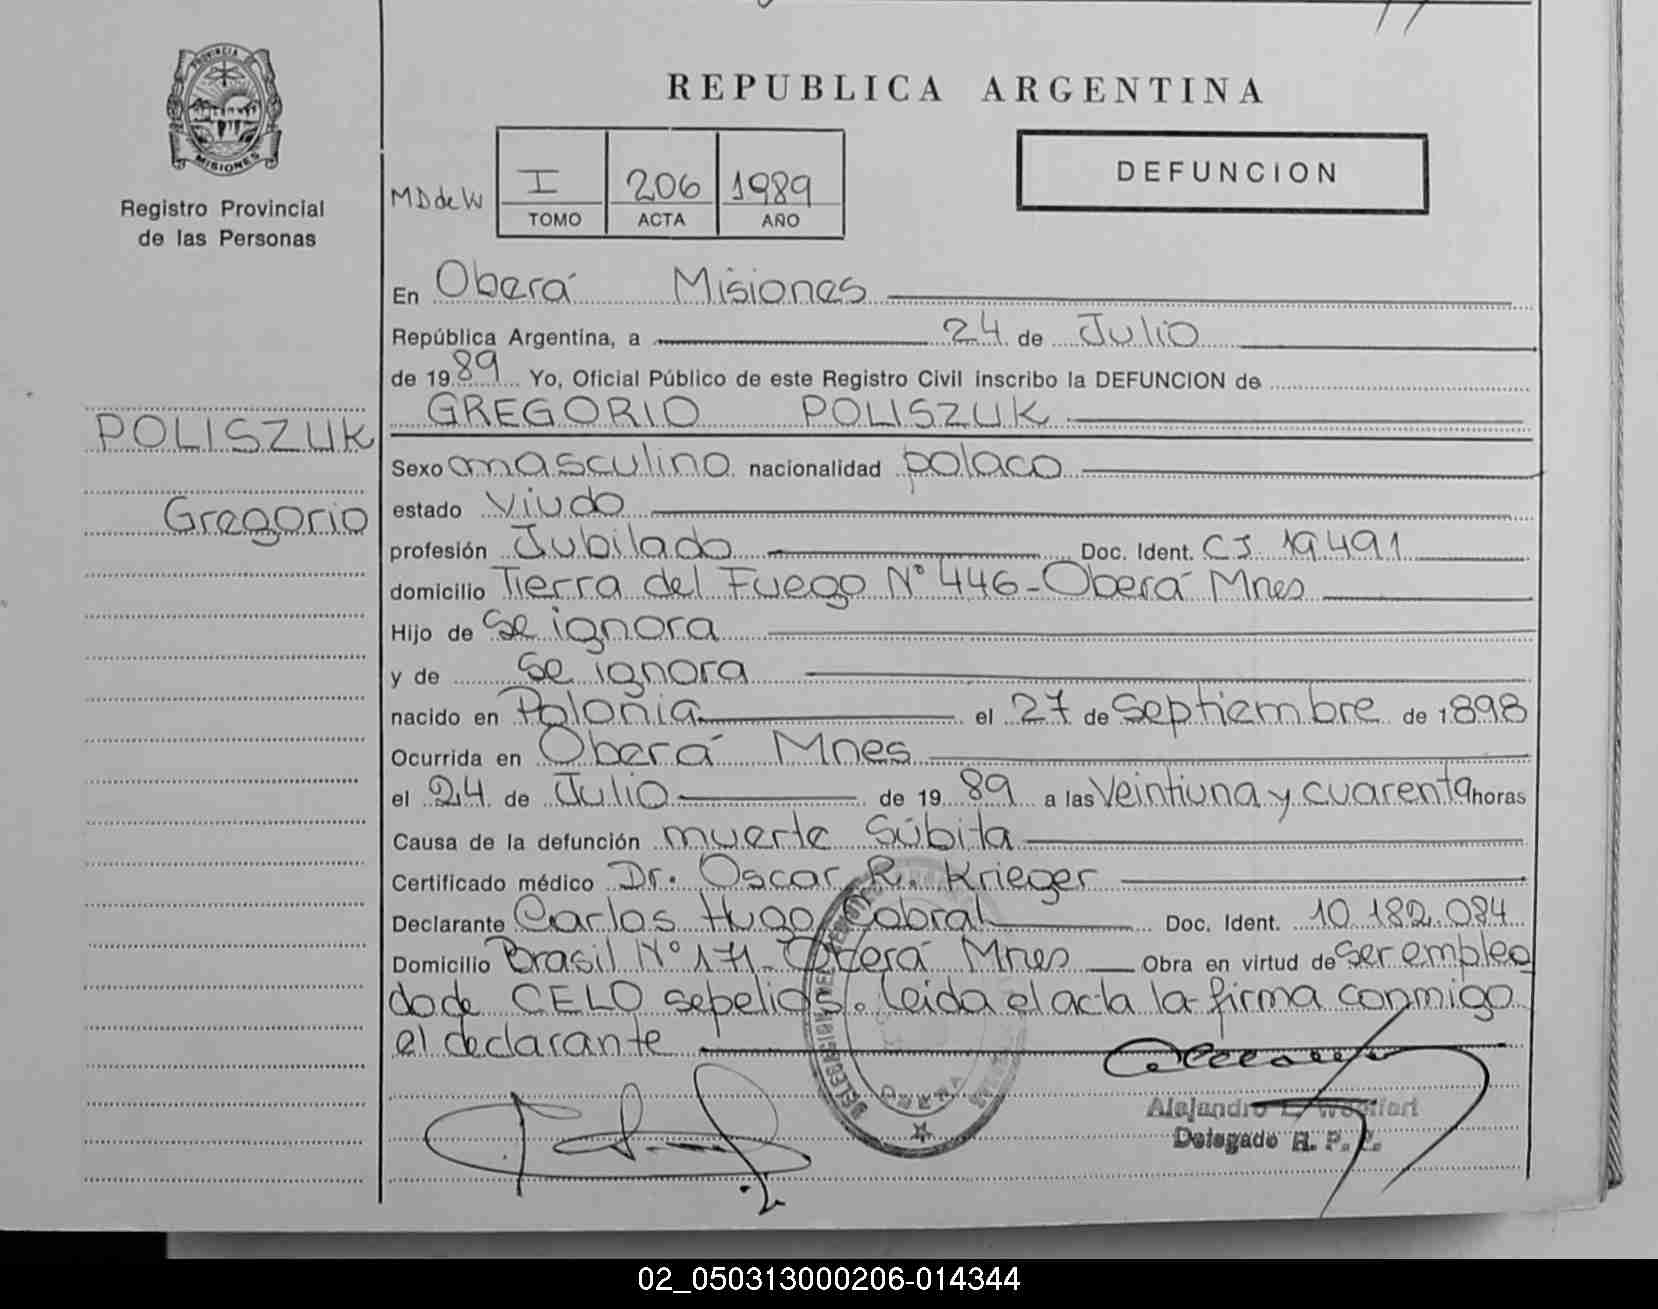 PROVINCIA DE
MISIONES
Registro Provincial
de las Personas
REPUBLICA ARGENTINA
DEFUNCION
MD de W
I 206 1989
TOMO ACTA AÑO
En Oberá Misiones
República Argentina, a 24 de Julio
de 1989 Yo, Oficial Público de este Registro Civil inscribo la DEFUNCION de
GREGORIO POLISZUK
POLISZUK
Gregorio
Sexo masculino nacionalidad polaco
estado Viudo
profesión Jubilado Doc. Ident. CI 19.491
domicilio Tierra del Fuego Nº 446-Oberá Mnes
Hijo de Se ignora
y de Se ignora
nacido en Polonia el 27 de Septiembre de 1898
Ocurrida en Oberá Mnes
el 24 de Julio de 1989 a las Veintiuna y cuarenta horas
Causa de la defunción muerte Súbita
Certificado médico Dr. Oscar R. Krieger
Declarante Carlos Hugo Cabral Doc. Ident. 10.182.084
Domicilio Brasil Nº 171-Oberá Mnes Obra en virtud de ser emplea
do de CELO sepelios. Leida el acta la firma conmigo
el declarante
OBERA
Alejandro
Delegado R. P. P.
02_050313000206-014344